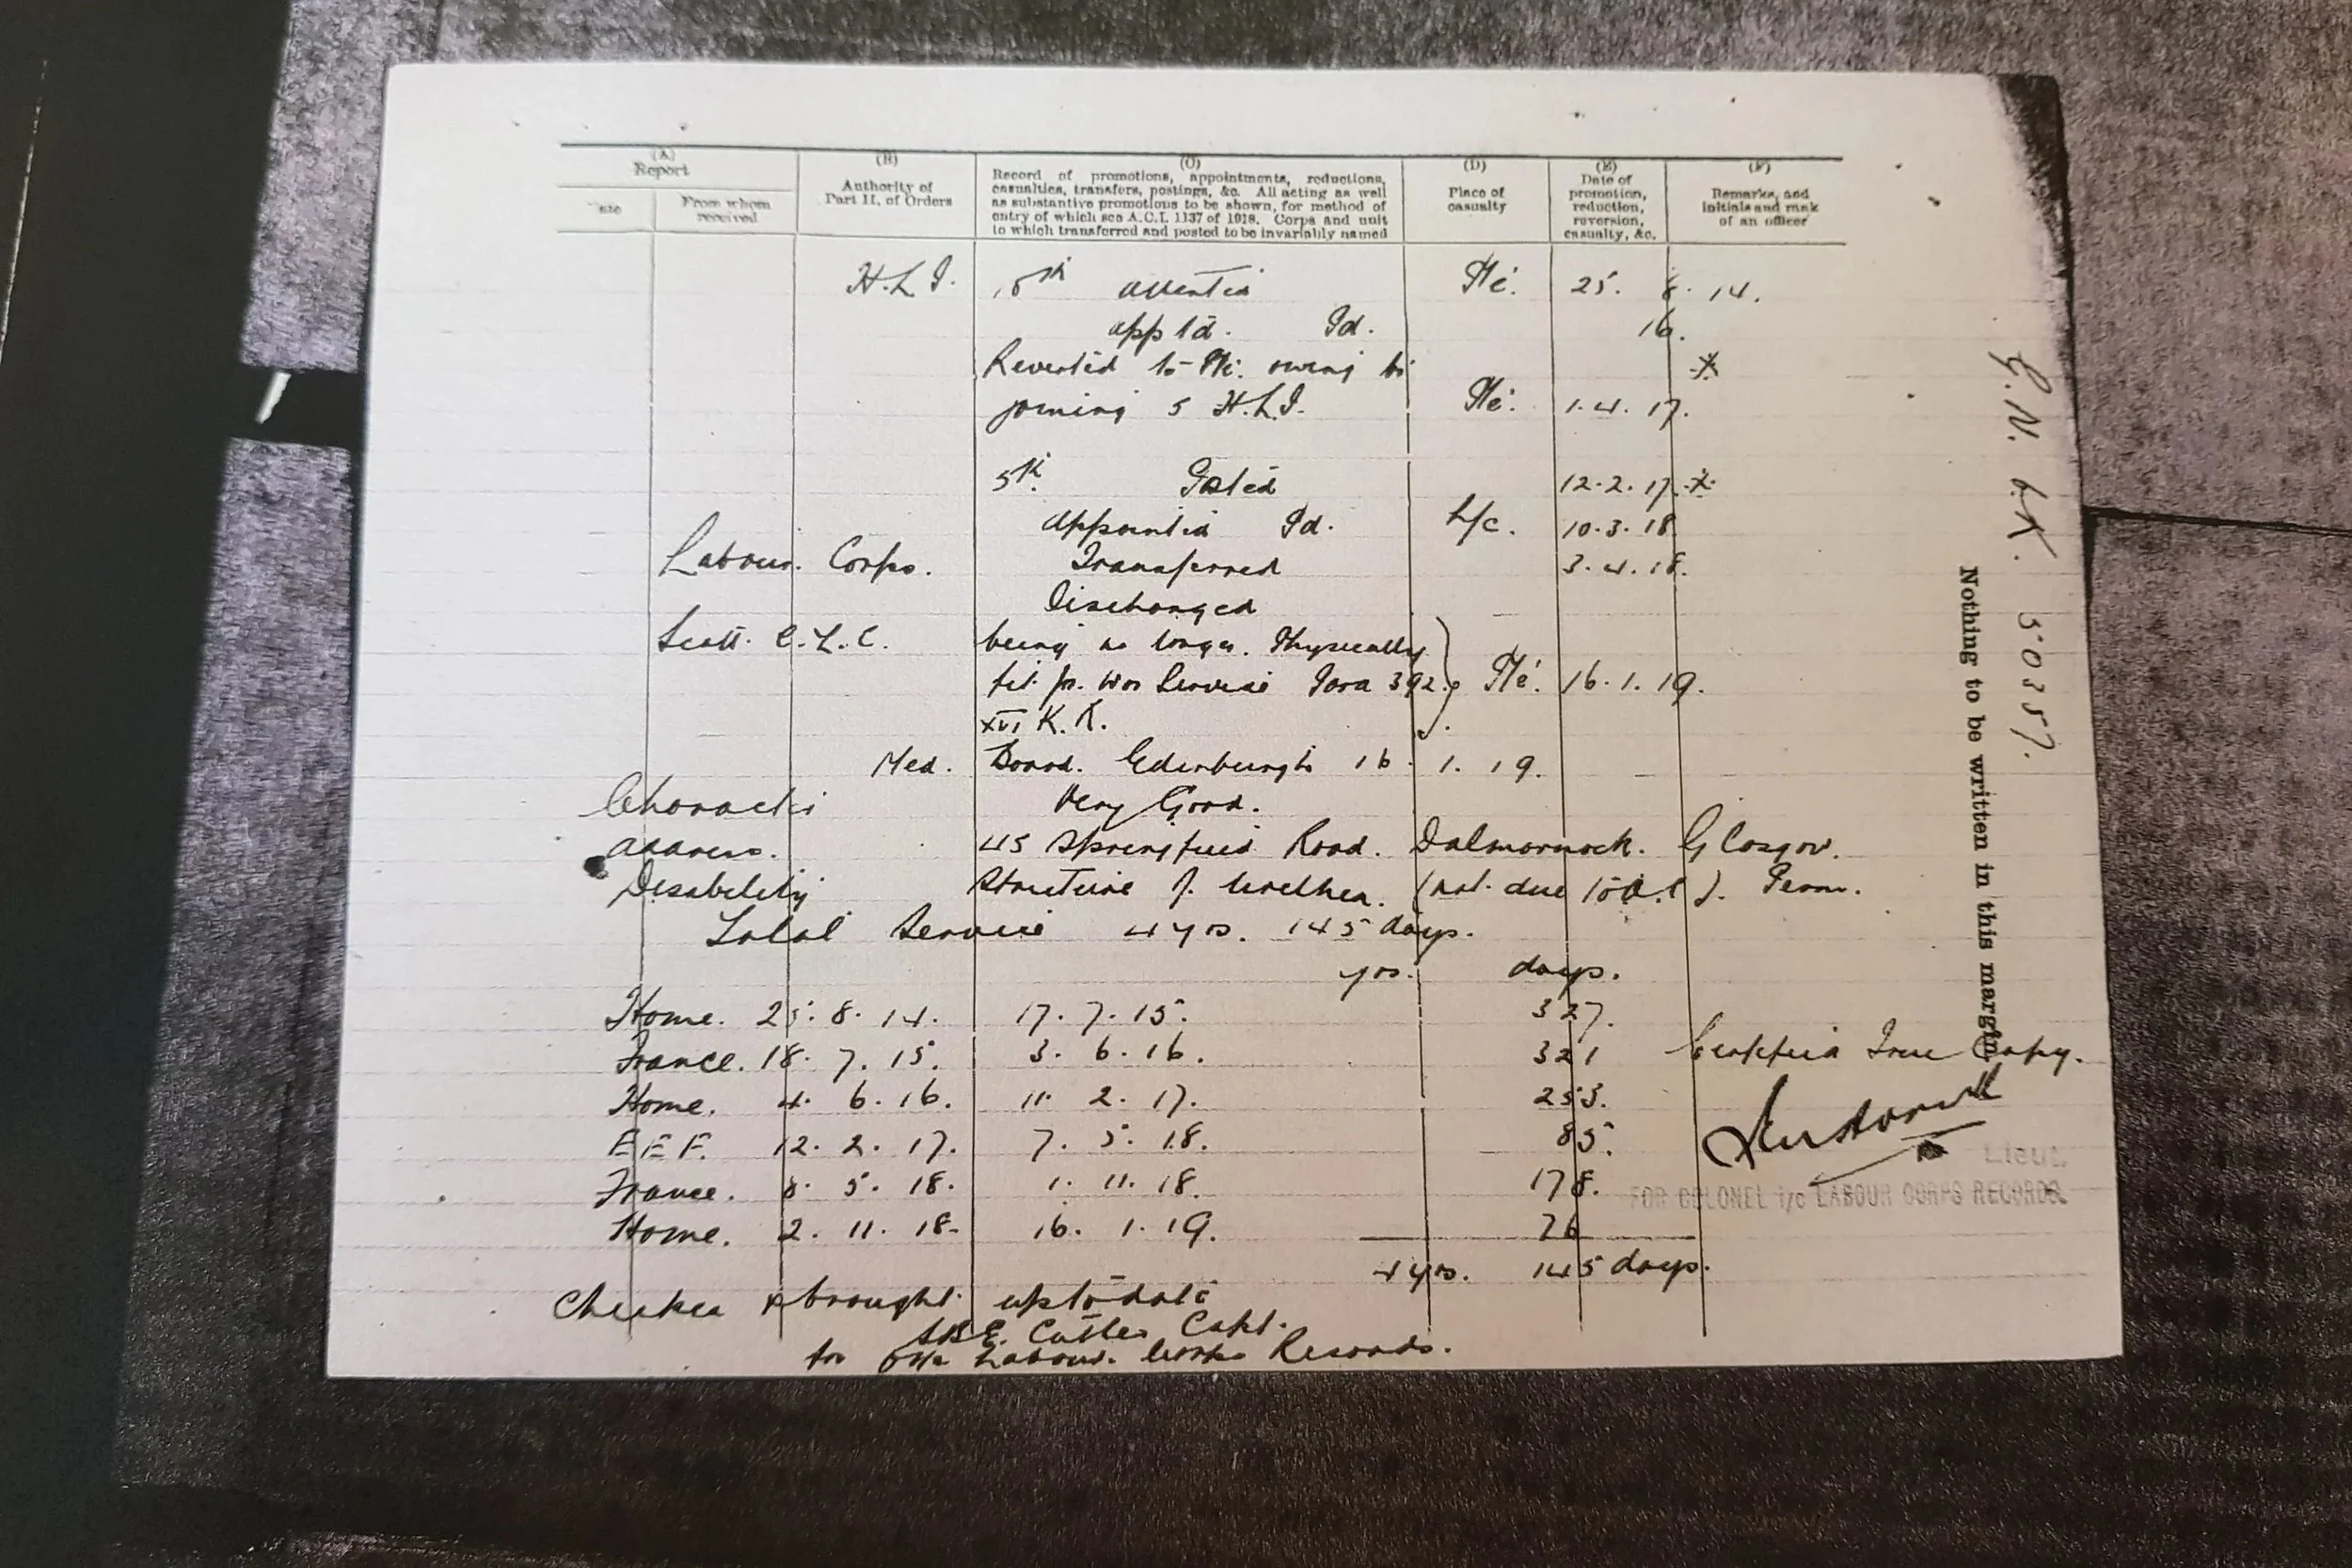 (A)
Report
From whom
received
(B)
Authority of
Part II. of Orders
(C)
Record of promotions, appointments, reductions,
casualties, transfers, postings, &c. All acting as well
as substantive promotions to be shown, for method of
entry of which see A.C.I. 1137 of 1918. Corps and unit
to which transferred and posted to be invariably named
(D)
Place of
casualty
(E)
Date of
promotion,
reduction,
reversion,
casualty, &c.
(F)
Remarks, and
initials and rank
of an officer
H.L.I. Attested Pte. 25. 8. 14.
apptd. Pd. 16.
Reverted to Pte. owing to
joining 5 H.L.I. Pte. 1.4.17.
5th Posted 12.2.17.
Appointed Pd. L/c. 10.3.18.
Labour. Corps. Transferred 3.4.18.
Discharged
Scott. C.L.C. being no longer. Physically
fit for War Service Para 392. Pte. 16.1.19.
XVI K.R.
Med. Board. Edinburgh 16. 1. 19.
Character Very Good.
Address. 45 Springfield Road. Dalmarnock. Glasgow.
Disability Stricture of Urethra. (not due Perm.
Total Service 4 yrs. 145 days.
yrs. days.
Home. 25. 8. 14. 17. 7. 15. 327.
France. 18. 7. 15. 3. 6. 16. 321
Home. 4. 6. 16. 11. 2. 17. 253.
E E F. 12. 2. 17. 7. 5. 18. 85.
France. 8. 5. 18. 1. 11. 18. 178.
Home. 2. 11. 18. 16. 1. 19. 76
4 yrs. 145 days.
Certified True Copy.
Lieut.
FOR COLONEL i/c LABOUR CORPS RECORDS.
Checked & brought up to date
Cutler Capt.
for O i/c Labour. Corps Records.
Nothing to be written in this margin
G.N. LK. 50357.